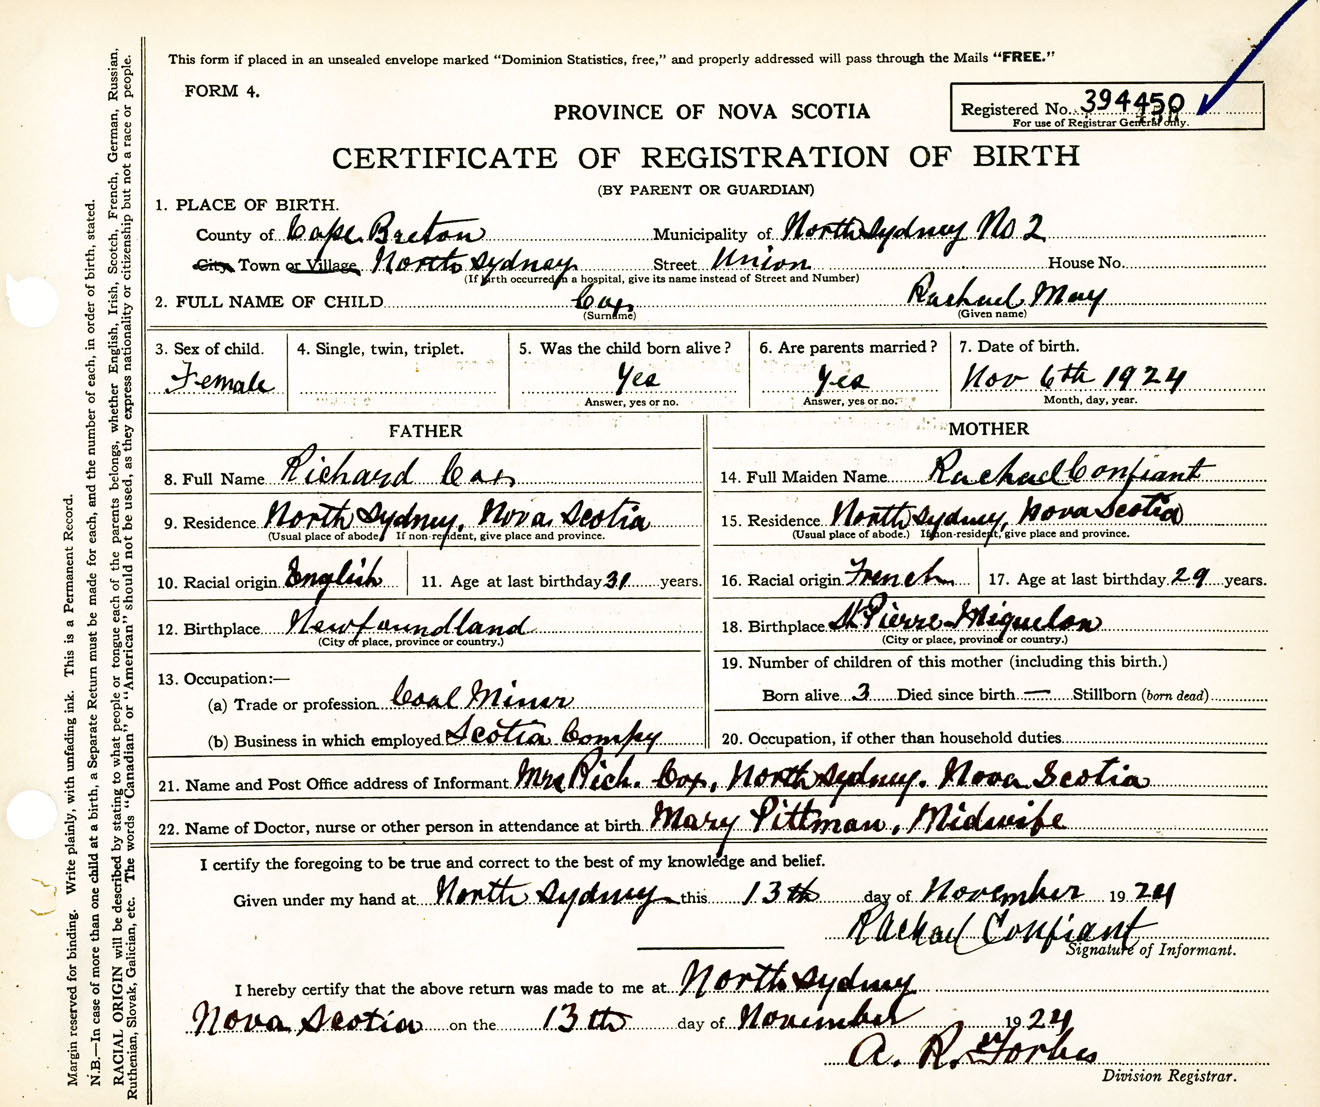 This form if placed in an unsealed envelope marked “Dominion Statistics, free,” and properly addressed will pass through the Mails “FREE.”
FORM 4.
PROVINCE OF NOVA SCOTIA
Registered No. 394450
For use of Registrar General only.
CERTIFICATE OF REGISTRATION OF BIRTH
(BY PARENT OR GUARDIAN)
1. PLACE OF BIRTH.
County of Cape Breton Municipality of North Sydney No 2
City Town or Village North Sydney Street Union House No.
(If birth occurred in a hospital, give its name instead of Street and Number)
2. FULL NAME OF CHILD Cox Rachael May
(Surname) (Given name)
3. Sex of child. 4. Single, twin, triplet. 5. Was the child born alive? 6. Are parents married? 7. Date of birth.
Female Yes Yes Nov 6th 1924
Answer, yes or no. Answer, yes or no. Month, day, year.
FATHER
8. Full Name Richard Cox
9. Residence North Sydney, Nova Scotia
(Usual place of abode. If non-resident, give place and province.
10. Racial origin English 11. Age at last birthday 31 years.
12. Birthplace Newfoundland
(City or place, province or country.)
13. Occupation:—
(a) Trade or profession Coal Miner
(b) Business in which employed Scotia Compy
MOTHER
14. Full Maiden Name Rachael Confiant
15. Residence North Sydney, Nova Scotia
(Usual place of abode.) If non-resident, give place and province.
16. Racial origin French 17. Age at last birthday 29 years.
18. Birthplace St Pierre Miquelon
(City or place, province or country.)
19. Number of children of this mother (including this birth.)
Born alive 3 Died since birth — Stillborn (born dead)
20. Occupation, if other than household duties
21. Name and Post Office address of Informant Mrs Rich. Cox, North Sydney. Nova Scotia
22. Name of Doctor, nurse or other person in attendance at birth Mary Pittman, Midwife
I certify the foregoing to be true and correct to the best of my knowledge and belief.
Given under my hand at North Sydney this 13th day of November 1924
Rachael Confiant
Signature of Informant.
I hereby certify that the above return was made to me at North Sydney
Nova Scotia on the 13th day of November 1924
A. R. Forbes
Division Registrar.
Margin reserved for binding. Write plainly, with unfading ink. This is a Permanent Record.
N.B.—In case of more than one child at a birth, a Separate Return must be made for each, and the number of each, in order of birth, stated.
RACIAL ORIGIN will be described by stating to what people or tongue each of the parents belongs, whether English, Irish, Scotch, French, German, Russian,
Ruthenian, Slovak, Galician, etc. The words “Canadian” or “American” should not be used, as they express nationality or citizenship but not a race or people.